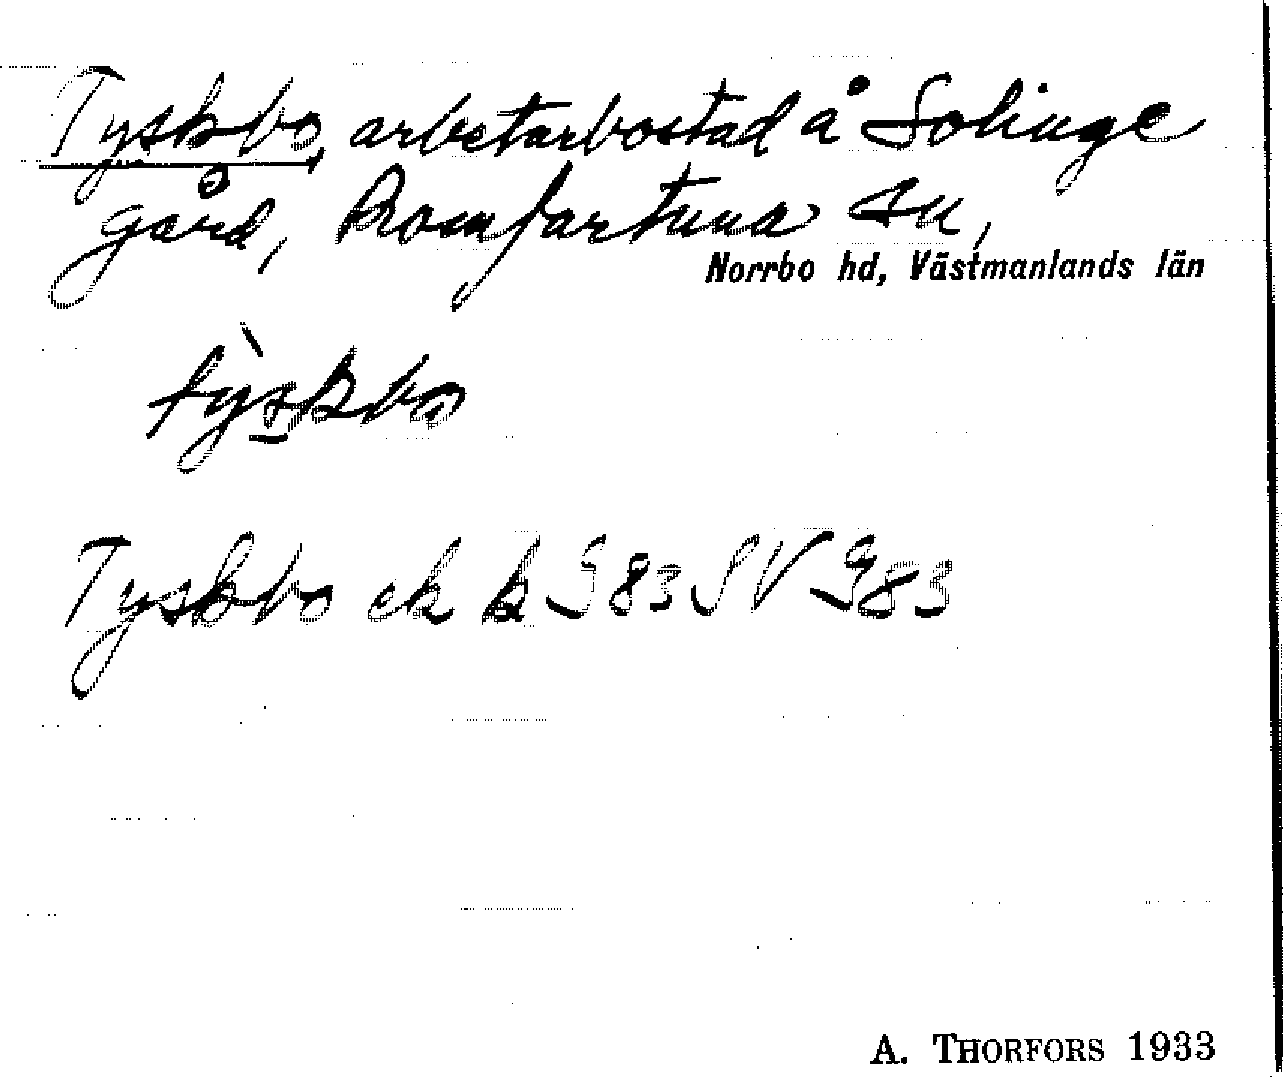 Tyskbo, arbetarbostad å Solinge
gård, Romfartuna sn,
Norrbo hd, Västmanlands län
tỳskbo
Tyskbo ek k J 83 SV J 83
A. THORFORS 1933